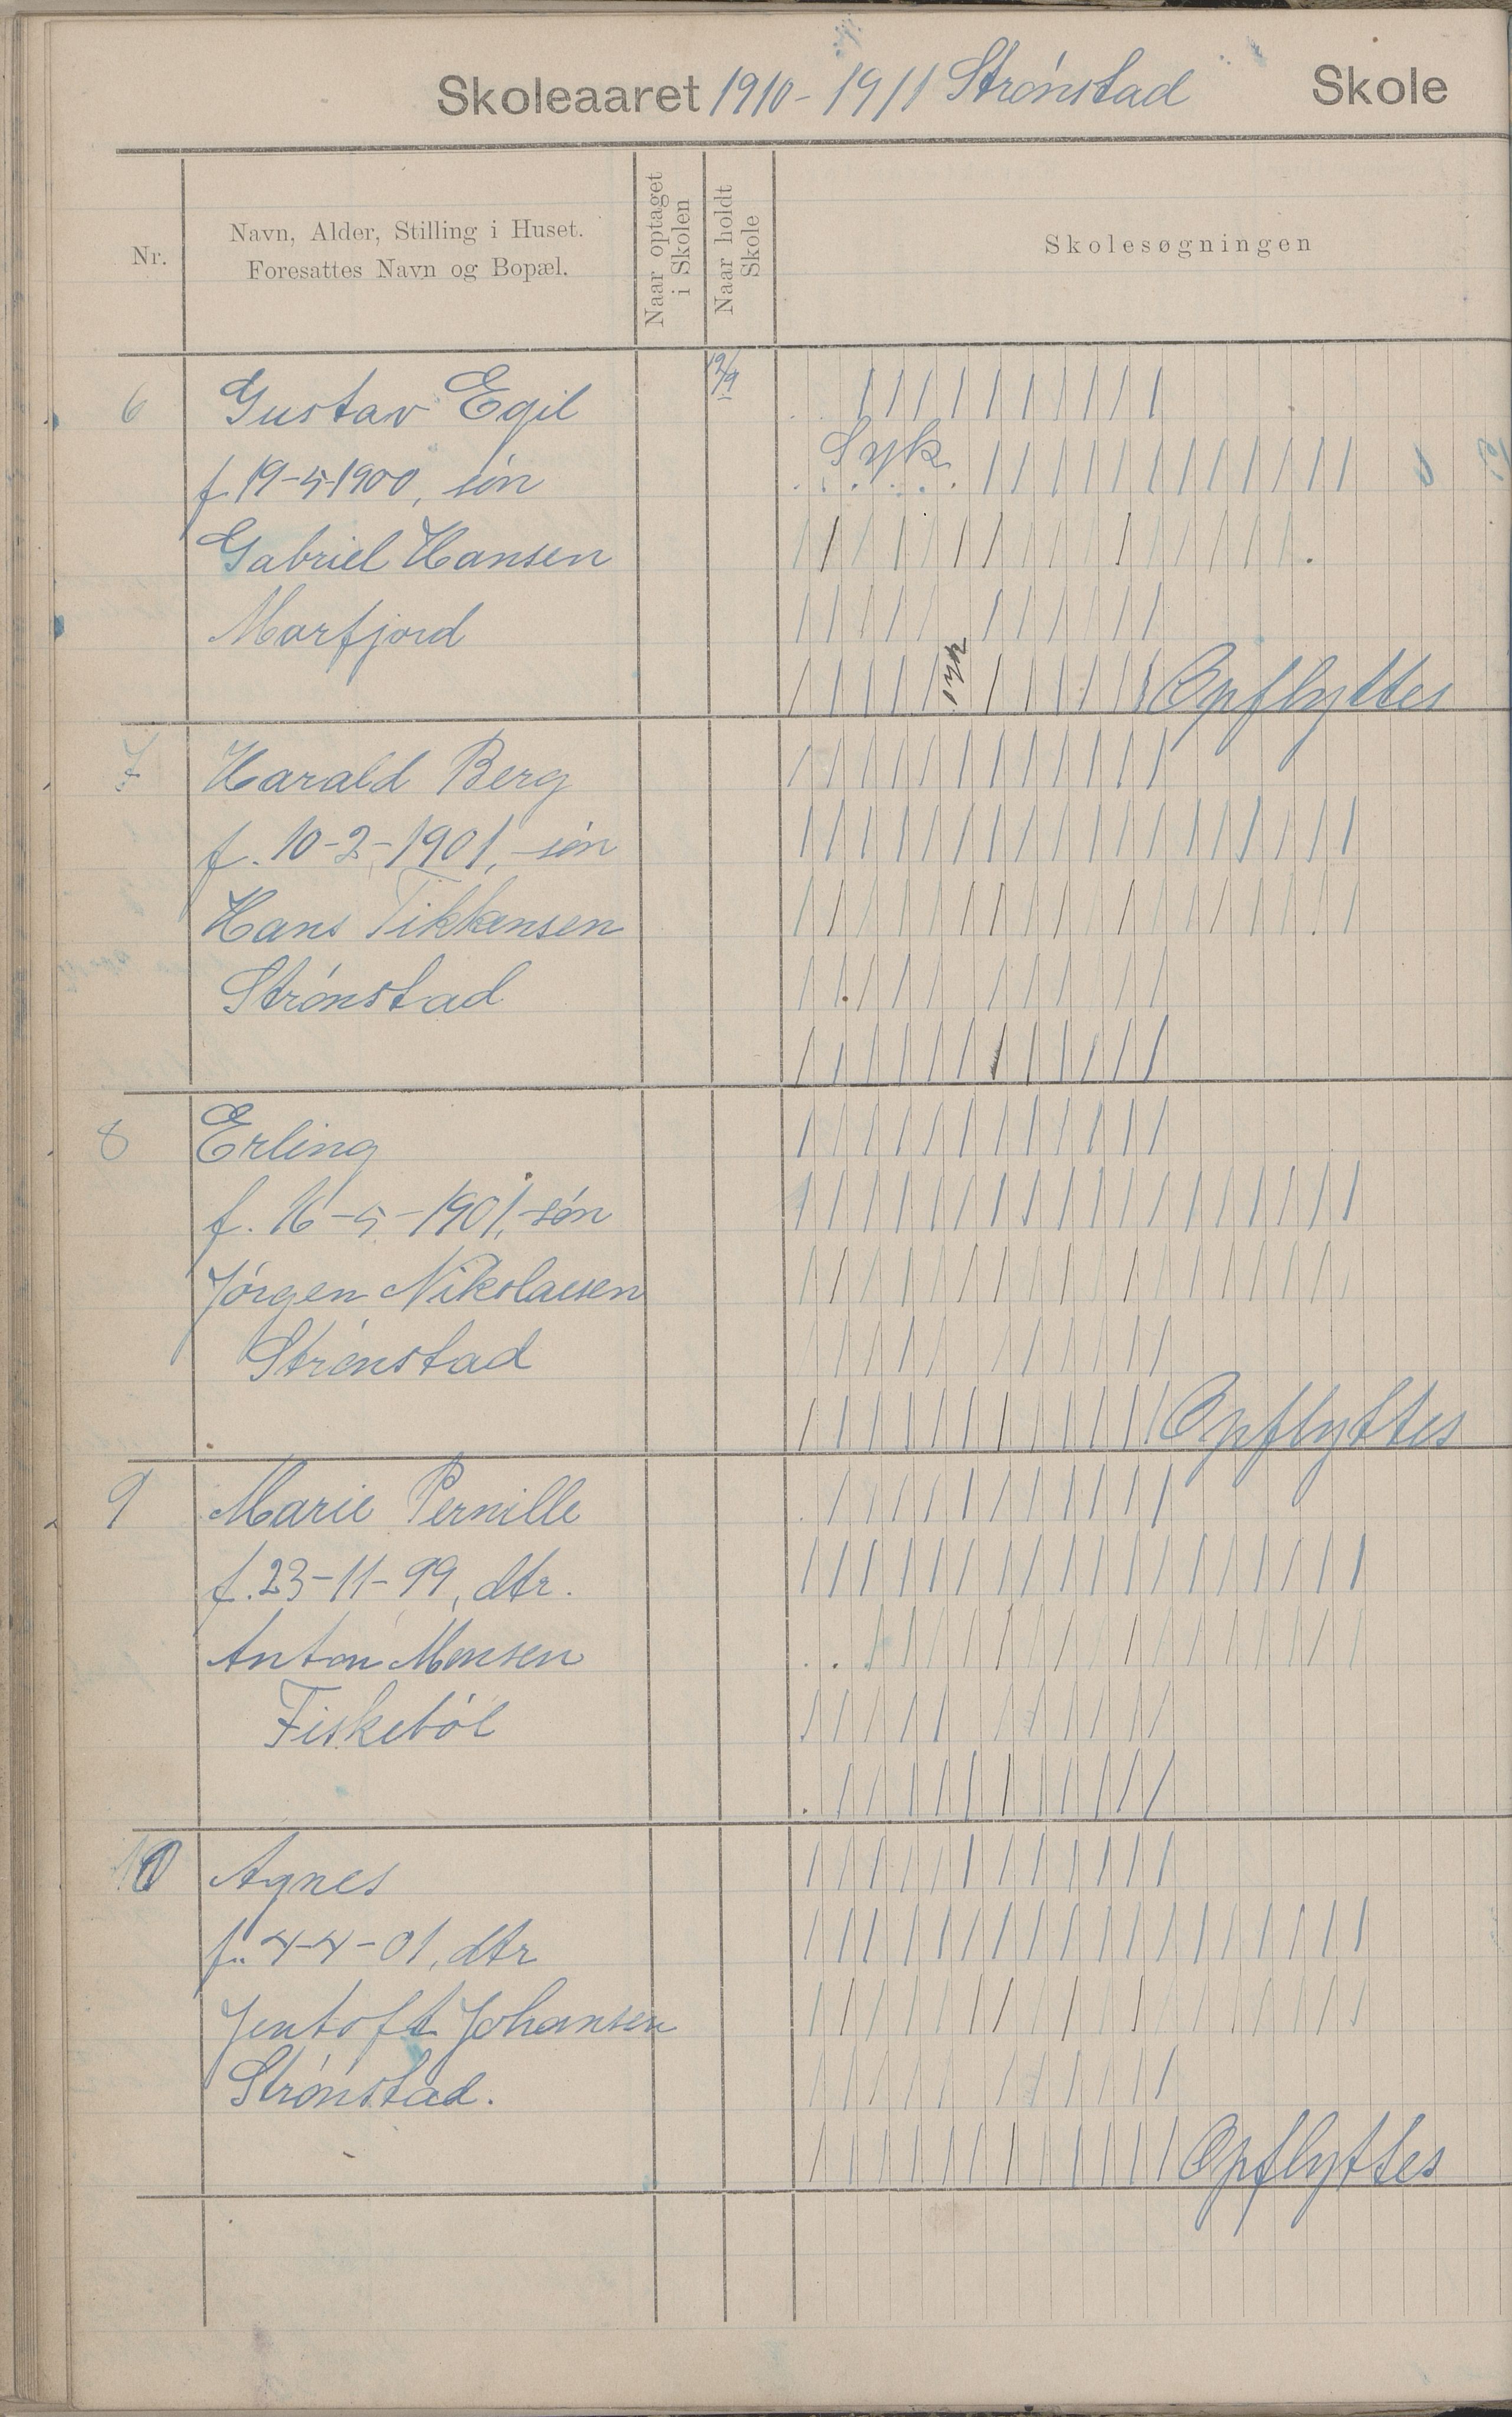 Skoleaaret 1910-1911 Strønstad Skole
Nr.
Navn, Alder, Stilling i Huset.
Foresattes Navn og Bopæl.
Naar optaget
i Skolen
Naar holdt
Skole
Skolesøgningen
6 Gustav Egil 12/9
f. 19-5-1900, søn Syk
Gabriel Hansen
Morfjord
syk Opflyttes
7 Harald Berg
f. 10-2-1901, søn
Hans
Strønstad
8 Erling
f. 16-5-1901, søn
Jørgen Nikolaisen
Strønstad
Opflyttes
9 Marie Pernille
f. 23-11-99, dtr.
Anton Monsen
Fiskebøl
10 Agnes
f. 4-4-01, dtr
Jentoft Johansen
Strønstad.
Opflyttes